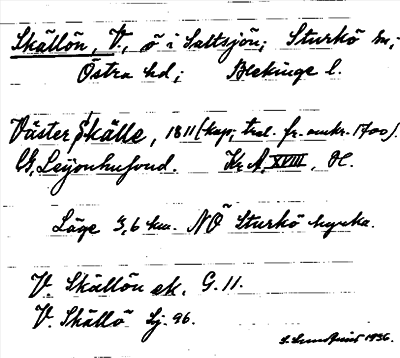 Skällön, V., ö i Saltsjön; Sturkö sn;
Östra hd; Blekinge l.
Väster Skälle, 1811 (kop; trol. fr. omkr. 1700).
G. Leijonhufvud. Kr A, XVIII, Öl.
Läge 3,6 km. NÖ Sturkö kyrka.
V. Skällön ek. G. 11.
V. Skällö Sj. 96.
1936.